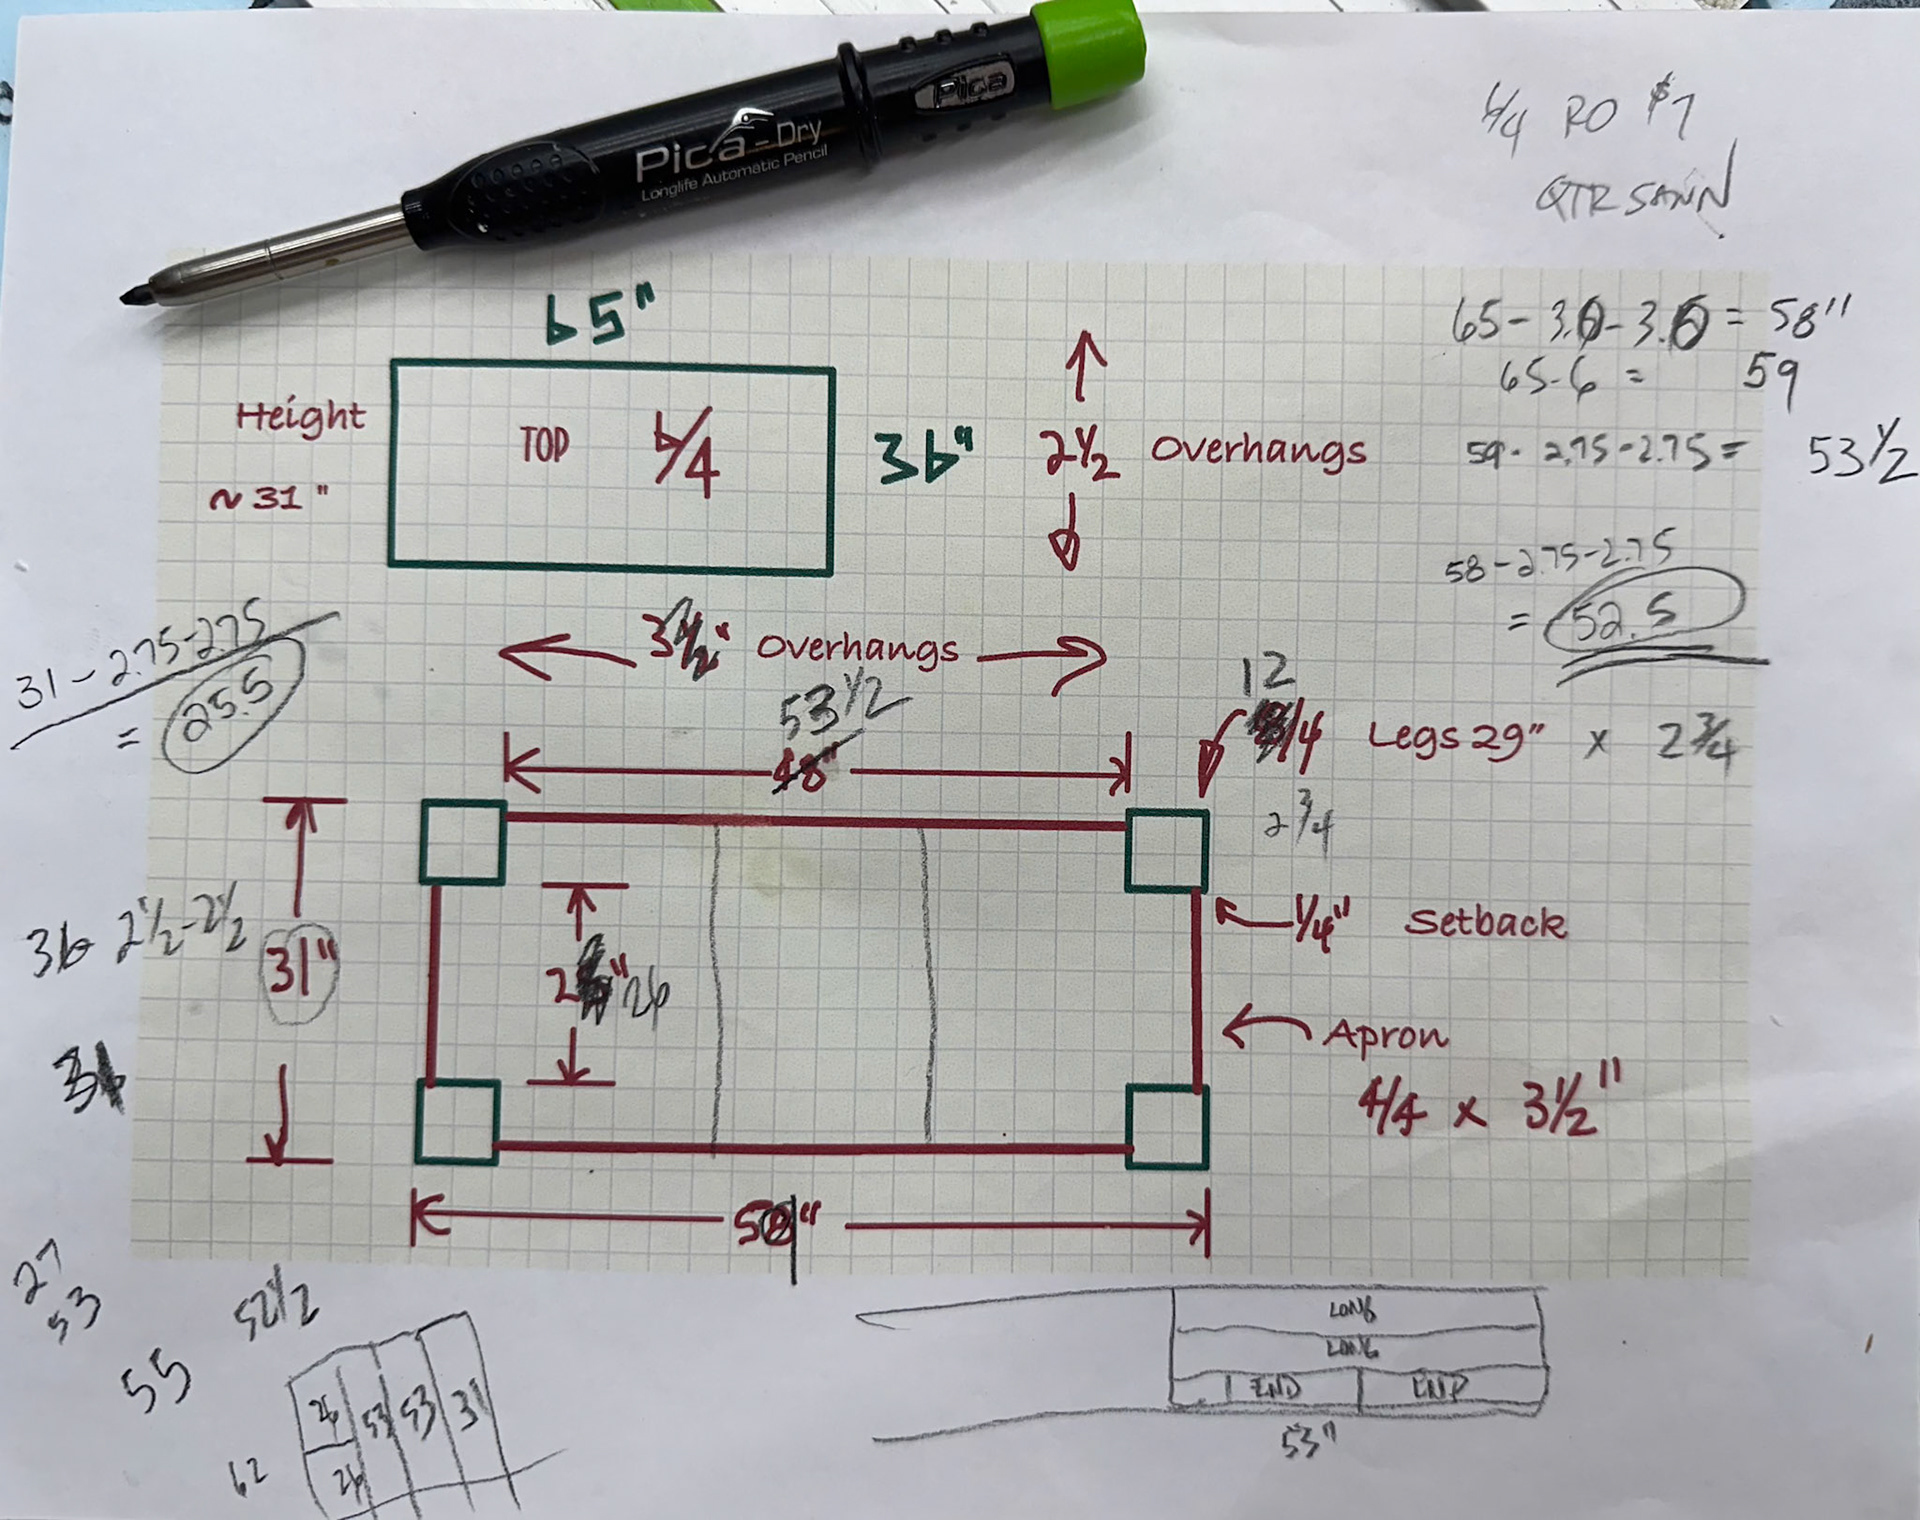 Pica
Pica-Dry
Longlife Automatic Pencil
6/4 RO $7
QTR SAWN
65"
65-3.0-3.0 = 58"
65-6 = 59
Height
~31"
TOP 6/4
36"
2 1/2 Overhangs
59-2.75-2.75 = 53 1/2
58-2.75-2.75
= 52.5
31-2.75-2.75
= 25.5
3 1/2" Overhangs
53 1/2
48"
12
/4 Legs 29" x 2 3/4
2 3/4
36-2 1/2-2 1/2
31"
2 " 26
1/4" Setback
Apron
4/4 x 3 1/2"
58"
27
53
52 1/2
55
62
26 53 53 31
26
LONG
LONG
END END
53"